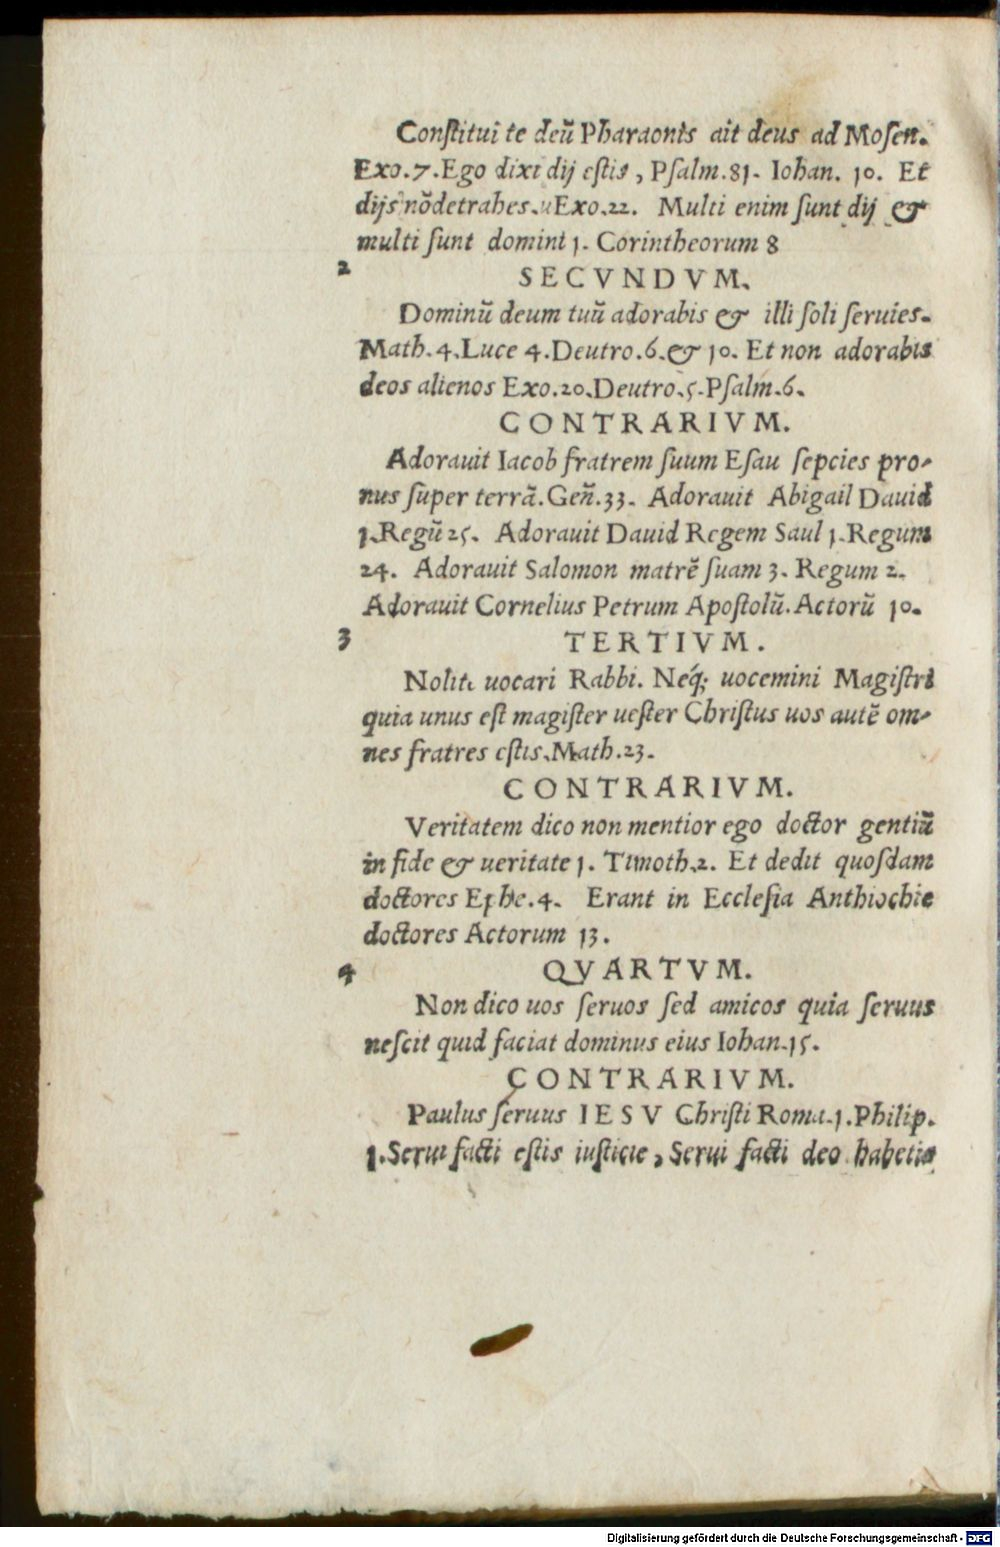 Conſtitui te deũ Pharaonis ait deus ad Moſen.
Exo.7.Ego dixi dij eſtis, Pſalm.81. Iohan. 10. Et
dijs nõ detrahes. Exo.22. Multi enim ſunt dij &
multi ſunt domini 1. Corintheorum 8
2
SECVNDVM.
Dominũ deum tuũ adorabis & illi ſoli ſeruies.
Math.4.Luce 4.Deutro.6.& 10. Et non adorabis
deos alienos Exo.20.Deutro.5.Pſalm.6.
CONTRARIVM.
Adorauit Iacob fratrem ſuum Eſau ſepcies pro-
nus ſuper terrã.Geñ.33. Adorauit Abigail Dauid
1.Regũ 25. Adorauit Dauid Regem Saul 1.Regum
24. Adorauit Salomon matrẽ ſuam 3. Regum 2.
Adorauit Cornelius Petrum Apoſtolũ.Actorũ 10.
3
TERTIVM.
Nolite uocari Rabbi. Neq́; uocemini Magiſtri
quia unus eſt magiſter ueſter Chriſtus uos autẽ om-
nes fratres eſtis.Math.23.
CONTRARIVM.
Veritatem dico non mentior ego doctor gentiũ
in fide & ueritate 1. Timoth.2. Et dedit quoſdam
doctores Ephe.4. Erant in Eccleſia Anthiochie
doctores Actorum 13.
4
QVARTVM.
Non dico uos ſeruos ſed amicos quia ſeruus
neſcit quid faciat dominus eius Iohan.15.
CONTRARIVM.
Paulus ſeruus IESV Chriſti Roma.1.Philip.
1.Serui facti eſtis iuſticie, Serui facti deo habetis
Digitalisierung gefördert durch die Deutsche Forschungsgemeinschaft - DFG